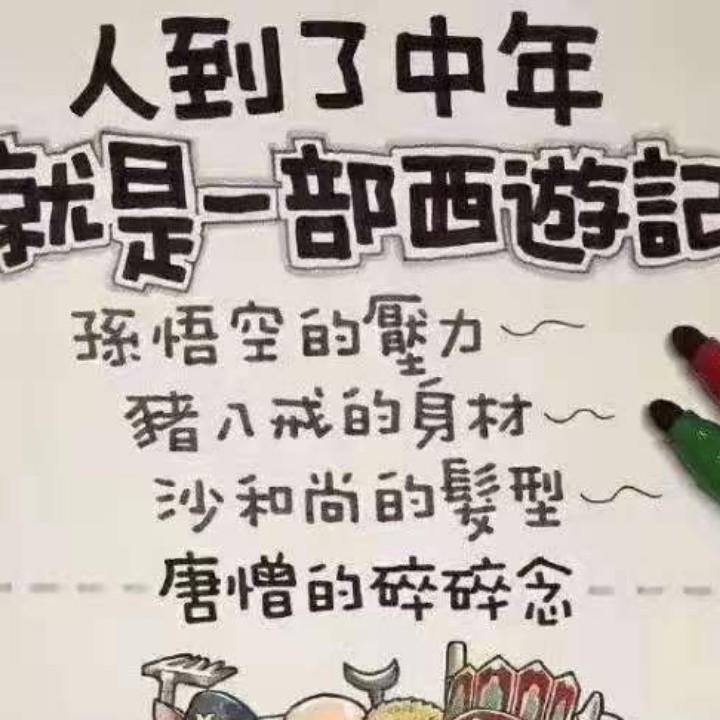 人到了中年
就是一部西遊記
孫悟空的壓力
豬八戒的身材
沙和尚的髮型
唐憎的碎碎念